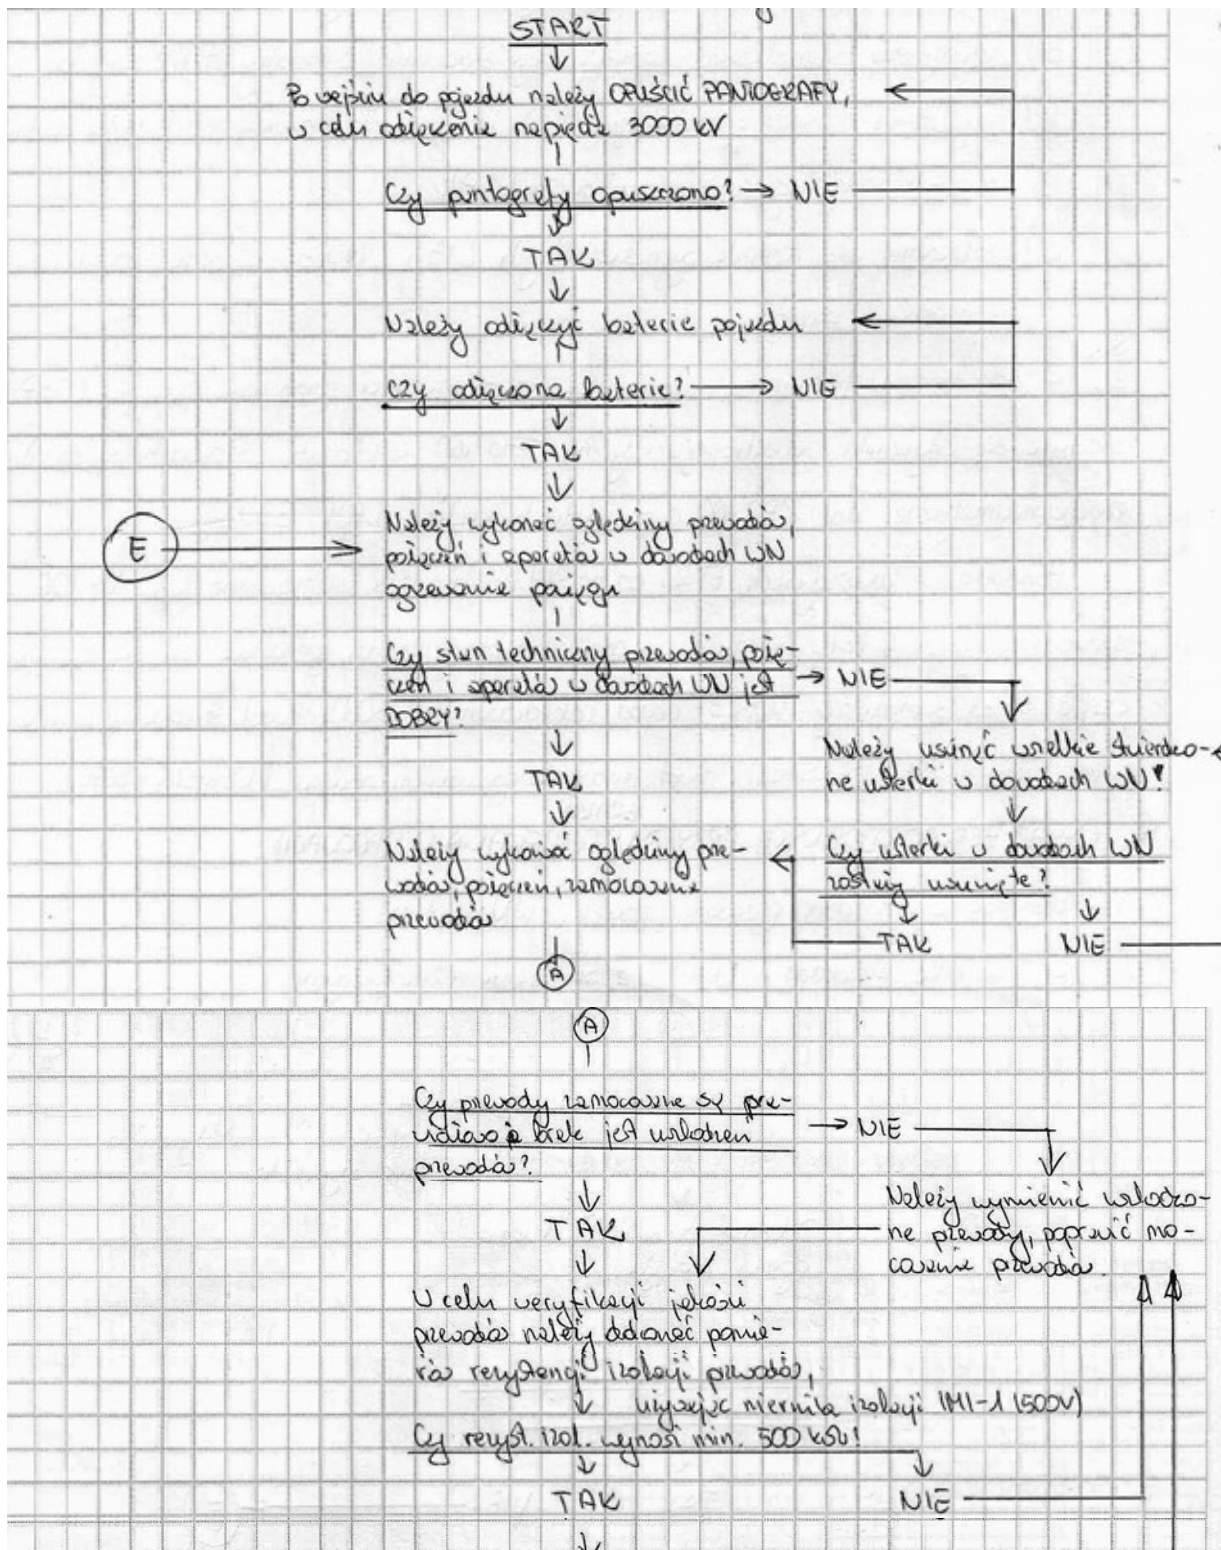 START
Po wejściu do pojazdu należy OPUŚCIĆ PANTOGRAFY,
w celu odłączenia napięcia 3000 kV
Czy pantografy opuszczono? → NIE
TAK
Należy odłączyć baterie pojazdu
Czy odłączona baterie? → NIE
TAK
E
Należy wykonać oględziny przewodów,
połączeń i aparatów w obwodach WN
ogrzewania pociągu
Czy stan techniczny przewodów, połą-
czeń i aparatów w obwodach WN jest → NIE
DOBRY?
TAK
Należy usunąć wszelkie stwierdzo-
ne usterki w obwodach WN!
Należy wykonać oględziny prze-
wodów, połączeń, zamocowania
przewodów
Czy usterki w obwodach WN
zostały usunięte?
TAK NIE
A
A
Czy przewody zamocowane są pra-
widłowo i brak jest uszkodzeń → NIE
przewodów?
TAK
Należy wymienić uszkodzo-
ne przewody, poprawić mo-
cowanie przewodów.
W celu weryfikacji jakości
przewodów należy dokonać pomia-
rów rezystancji izolacji przewodów,
używając miernika izolacji IMI-1 (500V)
Czy rezyst. izol. wynosi min. 500 kΩ!
TAK NIE